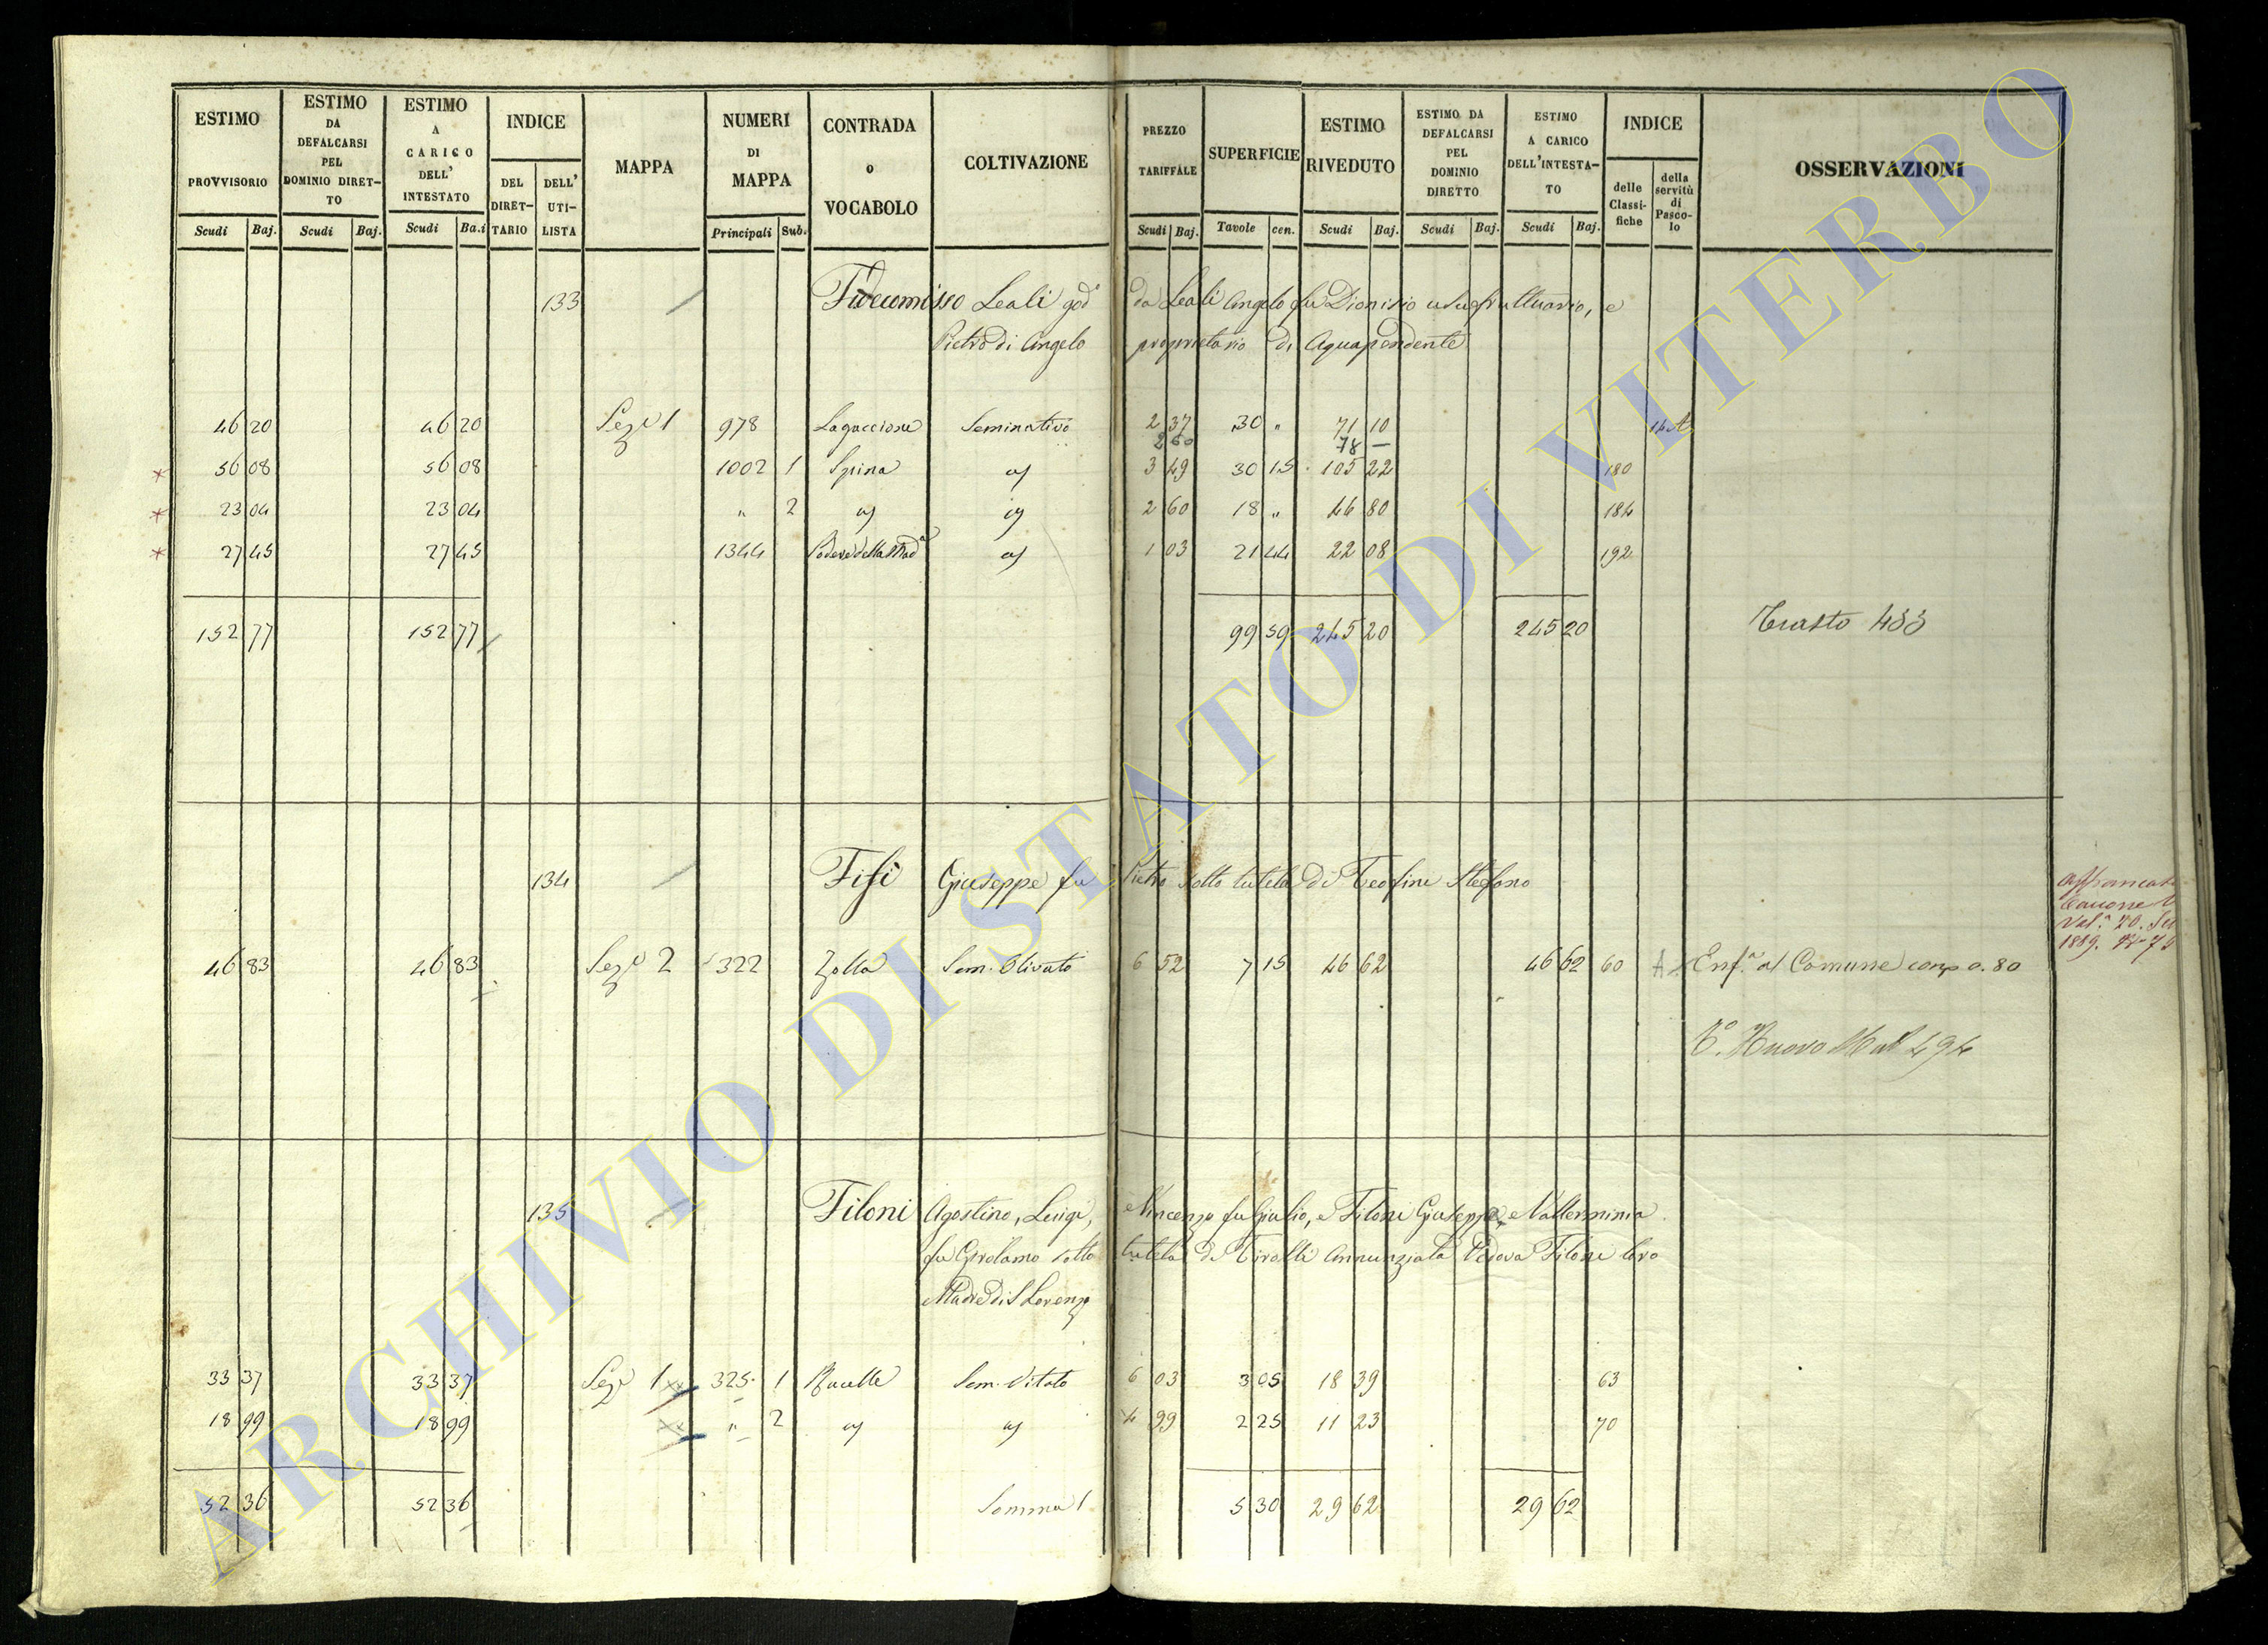 ESTIMO PROVVISORIO Scudi Baj.
ESTIMO DA DEFALCARSI PEL DOMINIO DIRETTO Scudi Baj.
ESTIMO A CARICO DELL' INTESTATO Scudi Ba.i
INDICE DEL DIRETTARIO DELL' UTILISTA
MAPPA
NUMERI DI MAPPA Principali Sub.
CONTRADA O VOCABOLO
COLTIVAZIONE
PREZZO TARIFFALE Scudi Baj.
SUPERFICIE Tavole cen.
ESTIMO RIVEDUTO Scudi Baj.
ESTIMO DA DEFALCARSI PEL DOMINIO DIRETTO Scudi Baj.
ESTIMO A CARICO DELL'INTESTATO Scudi Baj.
INDICE delle Classifiche della servitù di Pascolo
OSSERVAZIONI
133 Fidecomisso Leali god° da Leali Angelo fu Dionisio usufruttuario, e
Pietro di Angelo proprietario di Aquapendente
46 20 46 20 Sez° 1 978 Lagaccione Seminativo 2 37 30 " 71 10
2 60 78 —
* 56 08 56 08 1002 1 Spina 3 49 30 15 105 22 180
* 23 04 23 04 " 2 2 60 18 " 46 80 184
* 27 45 27 45 1344 Podere della Mad° 1 03 21 44 22 08 192
152 77 152 77 99 59 245 20 245 20 433
134 Fisi Giuseppe fu Pietro sotto tutela di Teofine Stefano
46 83 46 83 Sez° 2 322 Zolla Sem. Olivato 6 52 7 15 46 62 46 62 60 A Enf.a al Comune 0.80
Nuovo 494
1889.
135 Filoni Agostino, Luigi, e Vincenzo fu Giulio, e Filoni Giuseppe, e
fu Girolamo sotto tutela di Annunziata Vedova Filoni loro
Madre di S Lorenzo
33 37 33 37 Sez° 1 325 1 Rucelle Sem. Vitato 6 03 3 05 18 39 63
18 99 18 99 " 2 4 99 2 25 11 23 70
52 36 52 36 Somma 5 30 29 62 29 62
ARCHIVIO DI STATO DI VITERBO